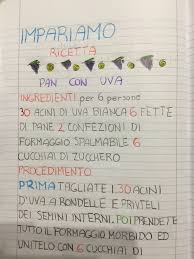 IMPARIAMO
RICETTA
PAN CON UVA
INGREDIENTI per 6 persone
30 ACINI DI UVA BIANCA 6 FETTE
DI PANE 2 CONFEZIONI DI
FORMAGGIO SPALMABILE 6
CUCCHIAI DI ZUCCHERO
PROCEDIMENTO
PRIMA TAGLIATE I 30 ACINI
D'UVA A RONDELLE E PRIVTELI
DEI SEMINI INTERNI. POI PRENDETE
TUTTO IL FORMAGGIO MORBIDO ED
UNITELO CON 6 CUCCHIAI DI